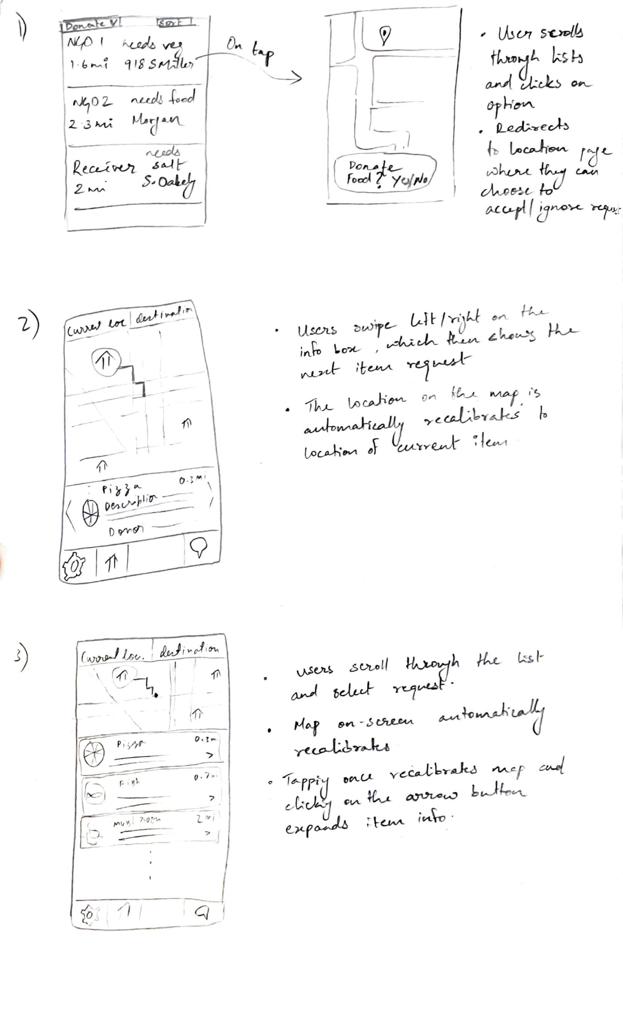 1)
Donate V Sort
NGO 1 needs veg
1.6mi 918 S Miller
NGO2 needs food
2.3mi Morgan
Receiver needs salt
2 mi S. Oakely
On tap
Donate
Food? Yes/No
• User scrolls
through lists
and clicks on
option
• Redirects
to location page
where they can
choose to
accept/ignore
2)
Current loc destination
Pizza 0.3mi
Description
Donor
• Users swipe left/right on the
info box, which then shows the
next item request
• The location on the map is
automatically recalibrates to
location of current item
3)
Current loc. destination
Pizza
2 mi
• users scroll through the list
and select request.
• Map on-screen automatically
recalibrates
• Tapping once recalibrates map and
clicking on the arrow button
expands item info.